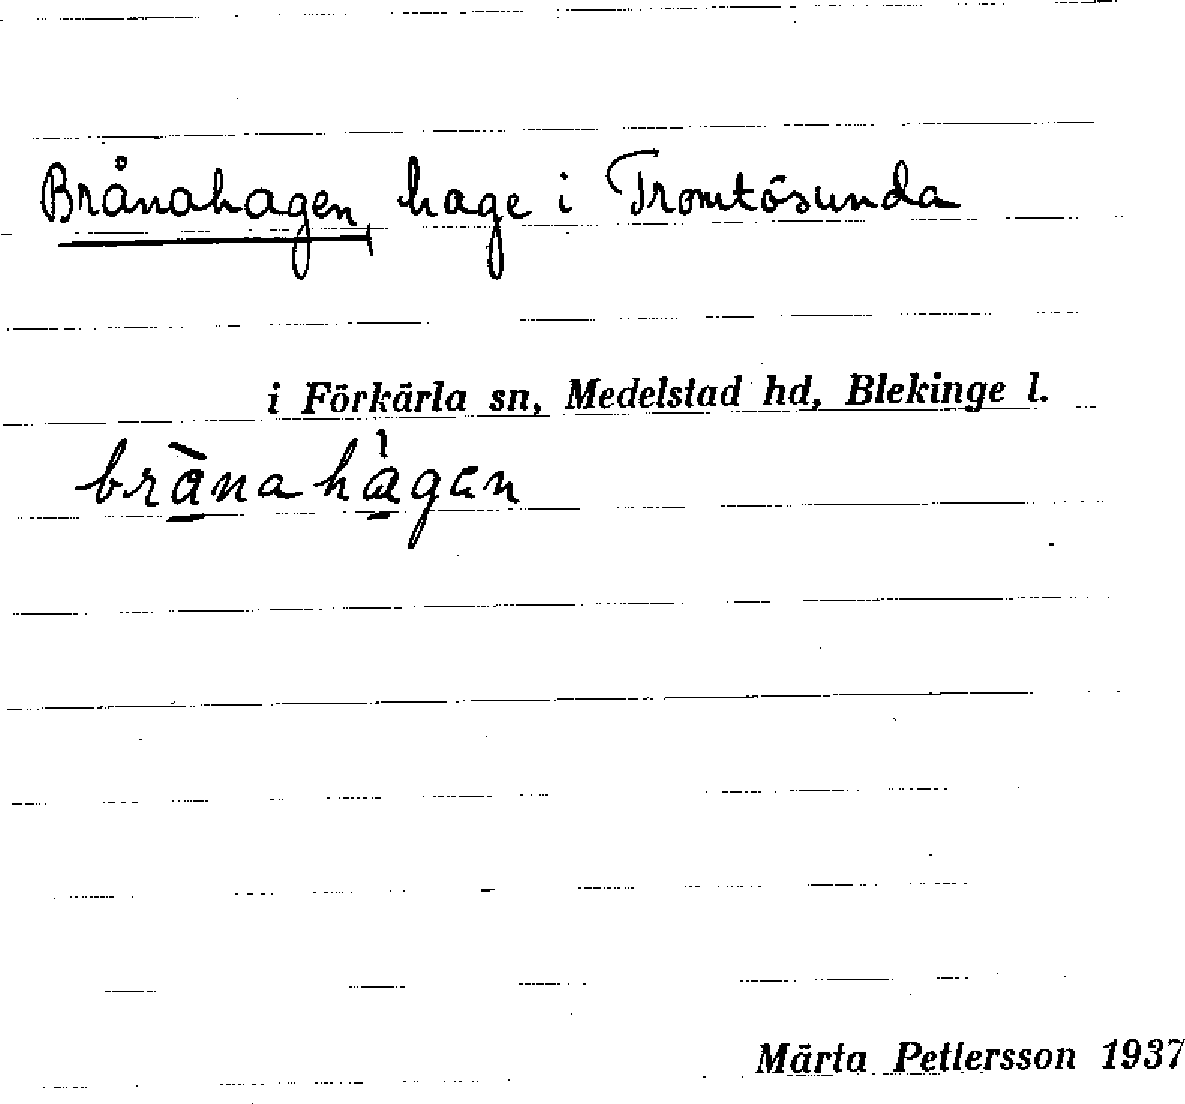 Brånahagen hage i Tromtösunda
i Förkärla sn, Medelstad hd, Blekinge l.
brànahàgan
Märta Pettersson 1937